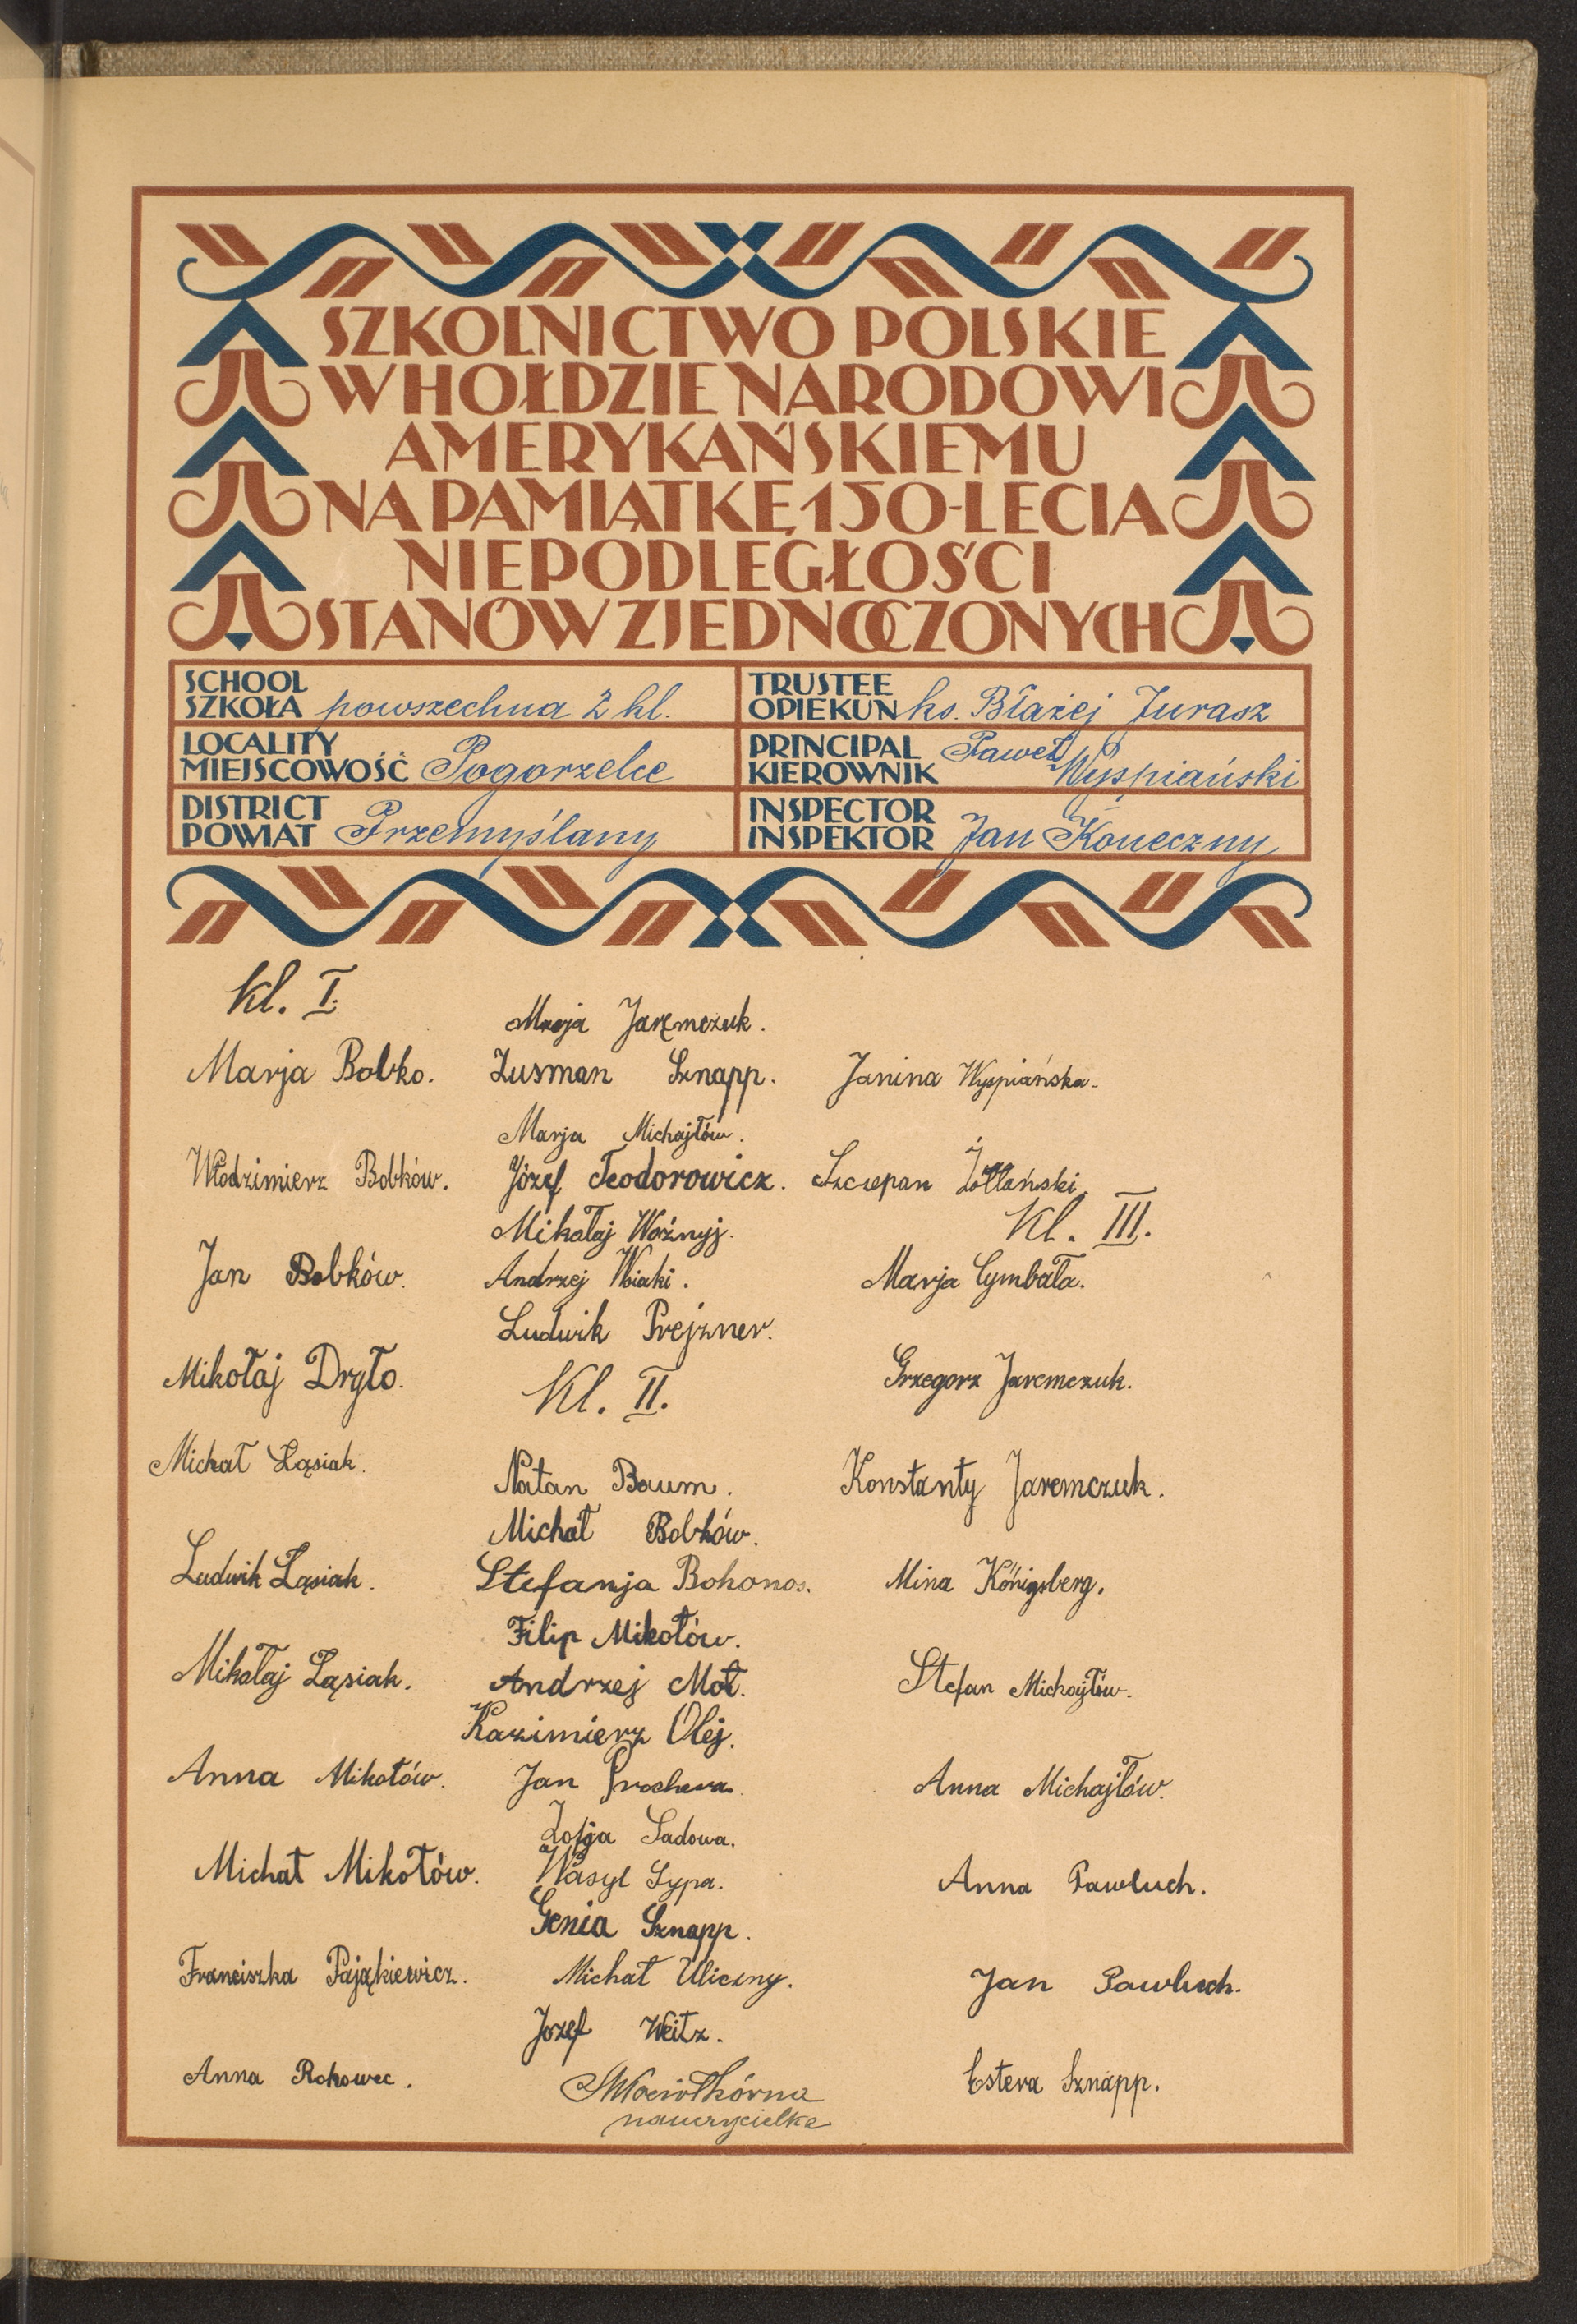 SZKOLNICTWO POLSKIE
W HOŁDZIE NARODOWI
AMERYKAŃSKIEMU
NA PAMIĄTKĘ 150-LECIA
NIEPODLEGŁOŚCI
STANÓW ZJEDNOCZONYCH
SCHOOL
SZKOŁA powszechna 2 kl.
TRUSTEE
OPIEKUN ks. Błażej Jurasz
LOCALITY
MIEJSCOWOŚĆ Pogorzelce
PRINCIPAL
KIEROWNIK Paweł Wyspiański
DISTRICT
POWIAT Przemyślany
INSPECTOR
INSPEKTOR Jan Koneczny
Kl. I.
Marja Bobko.
Włodzimierz Bobków.
Jan Bobków.
Mikołaj Dryło.
Michał Łąsiak.
Ludwik Łąsiak.
Mikołaj Łąsiak.
Anna Mikołów.
Michał Mikołów.
Franciszka Pająkiewicz.
Anna Rokowec.
Marja Jaremczuk.
Zusman Sznapp.
Marja Michajłów.
Józef Teodorowicz.
Mikołaj Woźnyj.
Andrzej
Ludwik Prejzner.
Kl. II.
Natan Baum.
Michał Bobków.
Stefanja Bohonos.
Filip Mikołów.
Andrzej Moł.
Kazimierz Olej.
Jan
Zofja Sadowa.
Wasyl Sypa.
Genia Sznapp.
Michał Uliczny.
Józef Weitz.
nauczycielka
Janina Wyspiańska.
Szczepan Żółtański.
Kl. III.
Marja Cymbała.
Grzegorz Jaremczuk.
Konstanty Jaremczuk.
Mina Königsberg.
Stefan Michajłów.
Anna Michajłów.
Anna Pawluch.
Jan Pawluch.
Estera Sznapp.